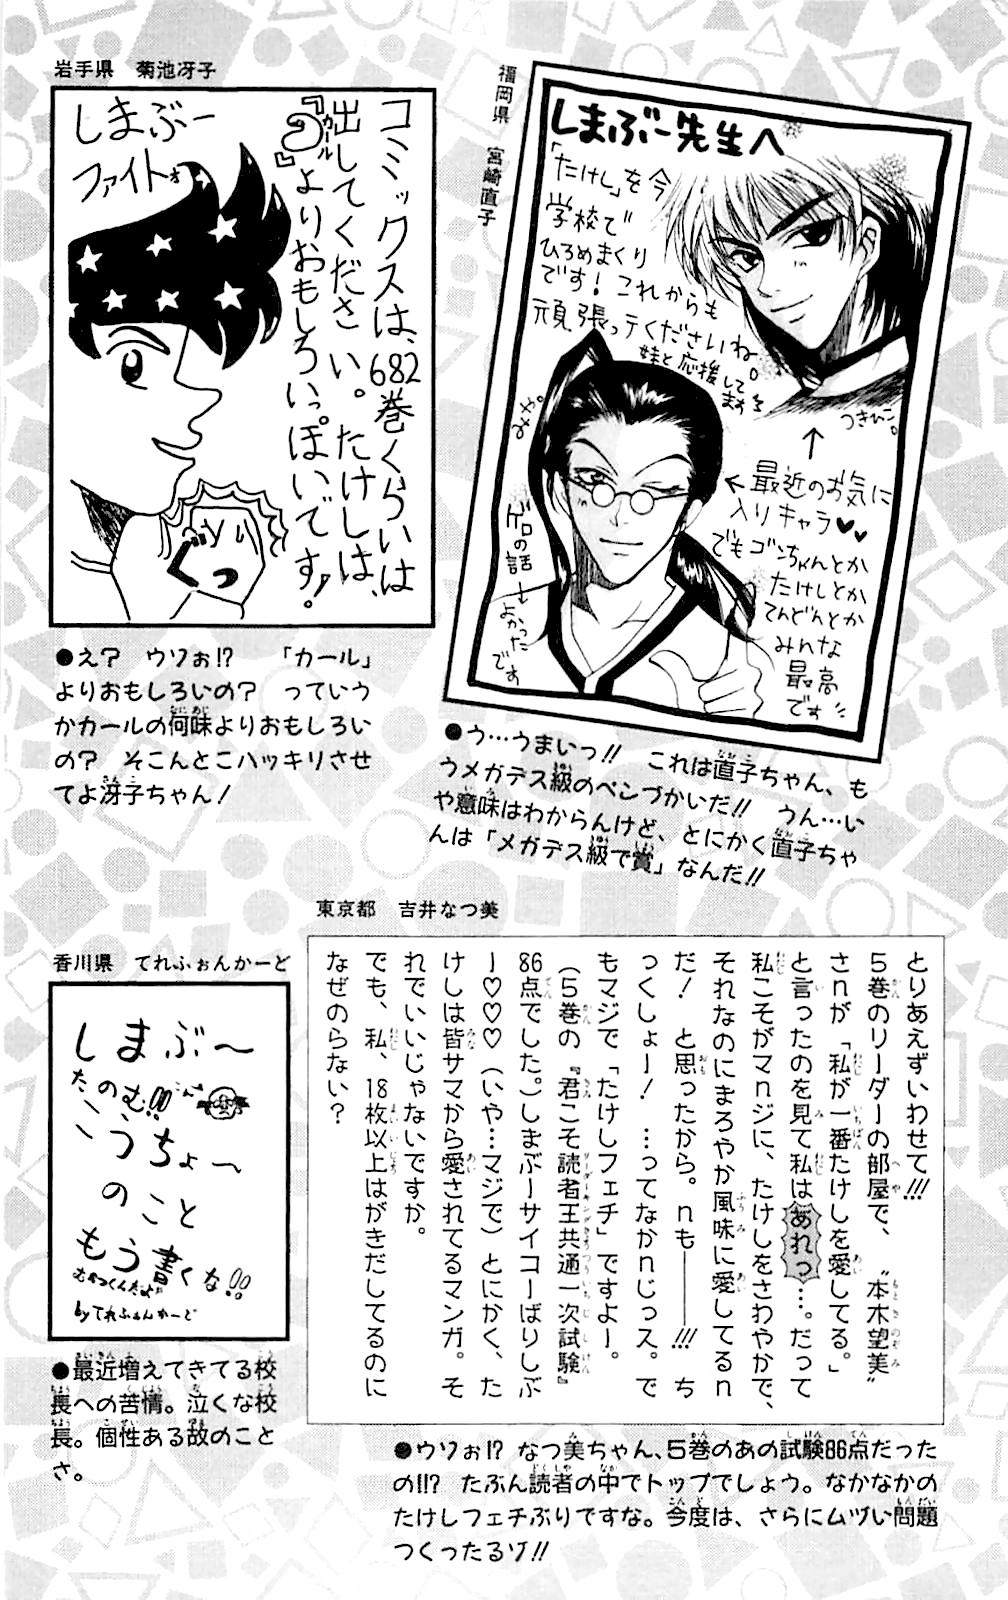 福岡県　宮崎直子
しまぶー先生へ
「たけし」を今
学校で
ひろめまくり
です！これからも
頑張ってくださいね。
妹と応援して
ます
つきひこ。
みや。
↑
←最近のお気に
入りキャラ♥♥
でもゴンちゃんとか
たけしとか
てんどんとか
みんな
最高
です
ゲロの話
→よかった
です
●う…うまいっ!!　これは直子ちゃん、も
うメガデス級のペンづかいだ!!　うん…い
や意味はわからんけど、とにかく直子ちゃ
んは「メガデス級で賞」なんだ!!
岩手県　菊池冴子
コミックスは、682巻くらいは
出してください。たけしは、
『カール』よりおもしろいっぽいです！
しまぶー
ファイトォ
ぐっ
●え？　ウソぉ!?　「カール」
よりおもしろいの？　っていう
かカールの何味よりおもしろい
の？　そこんとこハッキリさせ
てよ冴子ちゃん！
東京都　吉井なつ美
とりあえずいわせて!!!
５巻のリーダーの部屋で、〝本木望美〟
さnが「私が一番たけしを愛してる。」
と言ったのを見て私はあれっ…。だって
私こそがマnジに、たけしをさわやかで、
それなのにまろやか風味に愛してるn
だ！　と思ったから。nも――!!!　ち
っくしょー！　…ってなかnじっス。で
もマジで「たけしフェチ」ですよー。
（５巻の『君こそ読者王共通一次試験』
86点でした。）しまぶーサイコーばりしぶ
ー♡♡♡（いや…マジで）とにかく、た
けしは皆サマから愛されてるマンガ。そ
れでいいじゃないですか。
でも、私、18枚以上はがきだしてるのに
なぜのらない？
●ウソぉ!?　なつ美ちゃん、５巻のあの試験86点だった
の!!?　たぶん読者の中でトップでしょう。なかなかの
たけしフェチぶりですな。今度は、さらにムヅい問題
つくったるゾ!!
香川県　てれふぉんかーど
しまぶ〜
たのむ!!
こうちょ〜
のこと
もう書くな!!
むかつくんだよ
byてれふぉんかーど
●最近増えてきてる校
長への苦情。泣くな校
長。個性ある故のこと
さ。